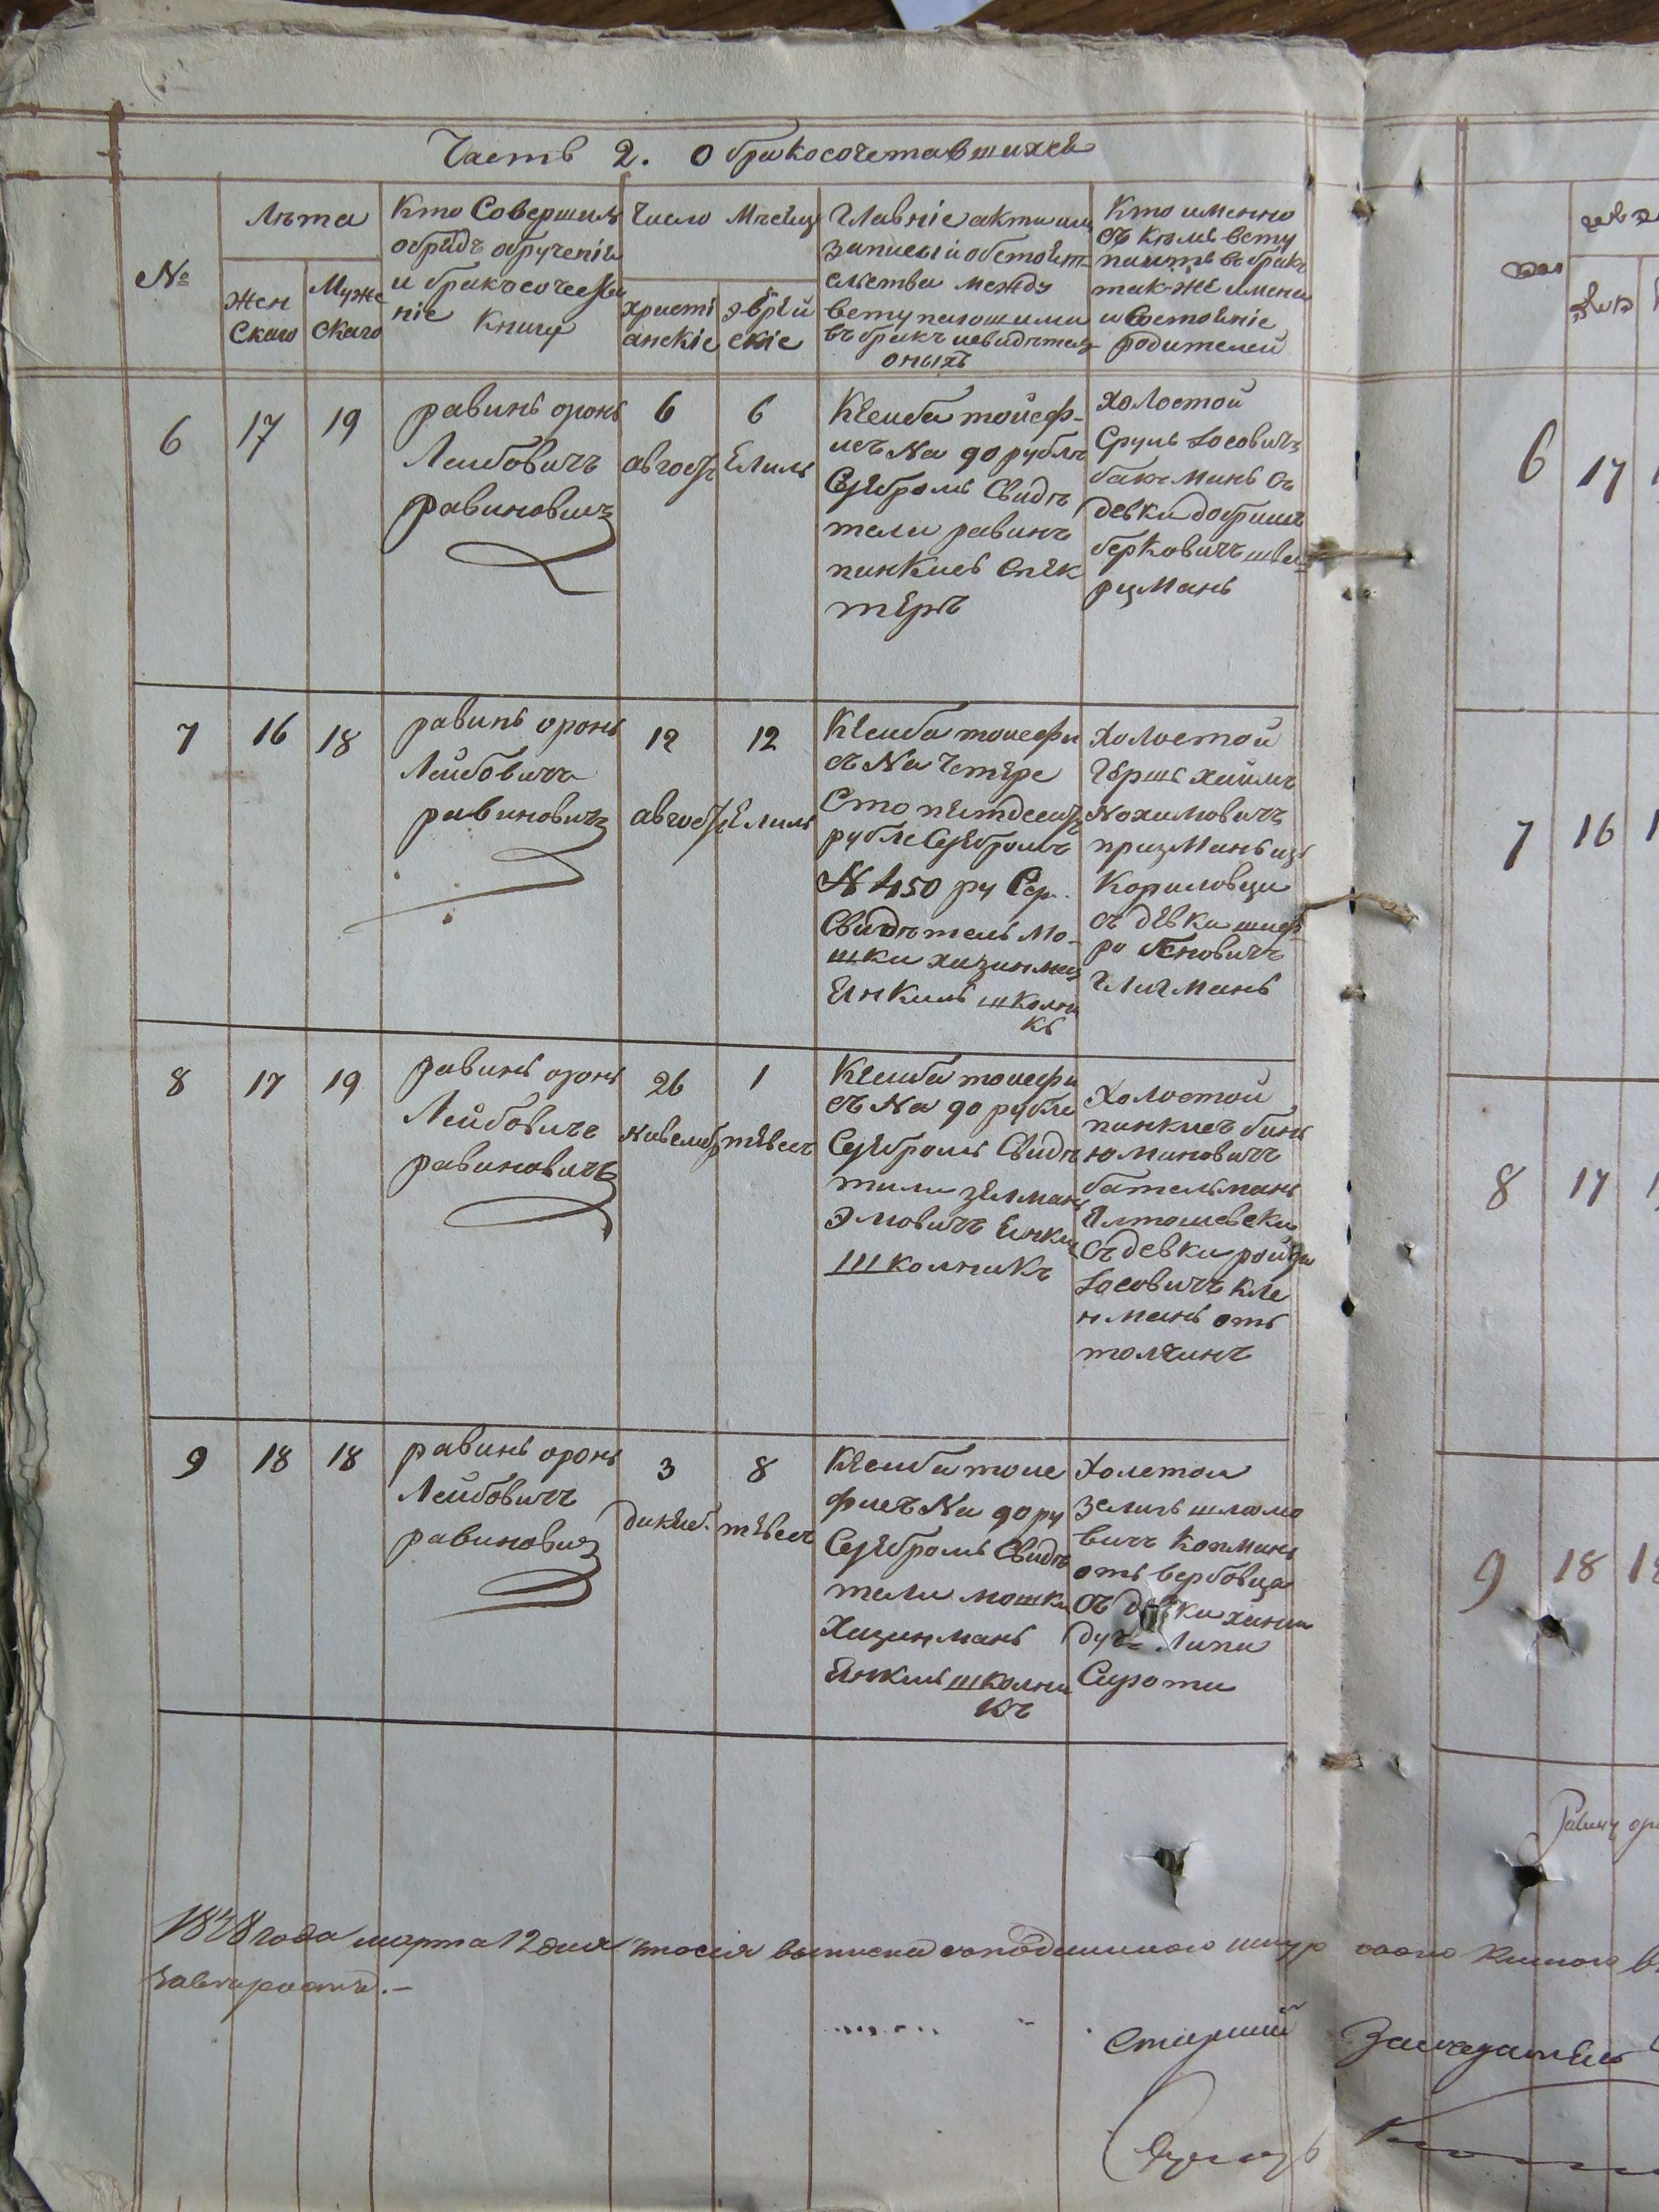 Часть 2. О бракосочетавшихся
№
Лѣта
Жен
скаго
Муже
скаго
Кто Совершилъ
обрядъ обрученія
и бракъсочета
ніе Книгу
Число Мѣсяц
христі
анскіе
эврей
скіе
Главніе акти или
записы и обстоят
ельства между
вступающими
въ бракъ исвидѣтел
оныхъ
Кто именно
съ кюмъ всту
паитъ въ бракъ
так-же имена
и Состояніе
родителей
6 17 19
равинъ оронъ
Леибовичъ
равиновичъ
6 6
августъ Елилъ
Ксиба тоисеф-
исъ На 90 рубля
Серебромъ Свидѣ
тели равинъ
пинкисъ Спек
теръ
Холостой
Сруль Іосовичъ
бакъминъ съ
девки добришъ
берковичъ шва-
рцманъ
7 16 18
равинъ оронъ
Лейбовичъ
равиновичъ
12 12
августъ Елилъ
Ксиба тоисефи
съ На Четере
Сто петдесятъ
рубле Серебромъ
N 450 ру Сер.
Свидѣтель Мо-
шки хазинман
Янкиль школни
къ
Холостой
Гершъ хаимъ
Нохимовичъ
призманъ изъ
Кориловци
съ девки шиеф-
ра Беновичъ
Глигманъ
8 17 19
равинъ оронъ
Лейбовичъ
равиновичъ
26 1
ноемвбр тевесъ
Ксиба тоисефи
съ На 90 рубле
Серебромъ Свидѣ
тили зелманъ
Эмовичъ Енкил
Школникъ
Холостой
пинкисъ бинь
юминовичъ
бательманъ
Ялтошевски
Съ девки ройзи
Іосовичъ кле
нманъ отъ
толчинъ
9 18 18
равинъ оронъ
Лейбовичъ
равиновичъ
3 8
дикяб. тевесъ
Ксиба тоисе
фисъ На 90 ру
Серебромъ Свидѣ
тели мошки
Хазинманъ
Янкиль школни
къ
Холстои
Зелигъ шлюмо
вичъ копманъ
отъ вербовца
Съ девки ханни
дуч= Липи
Сироти
1848 года марта 12 дня
завчарость.-
Старший Засчедатель
6 17
7 16
8 17
9 18 18